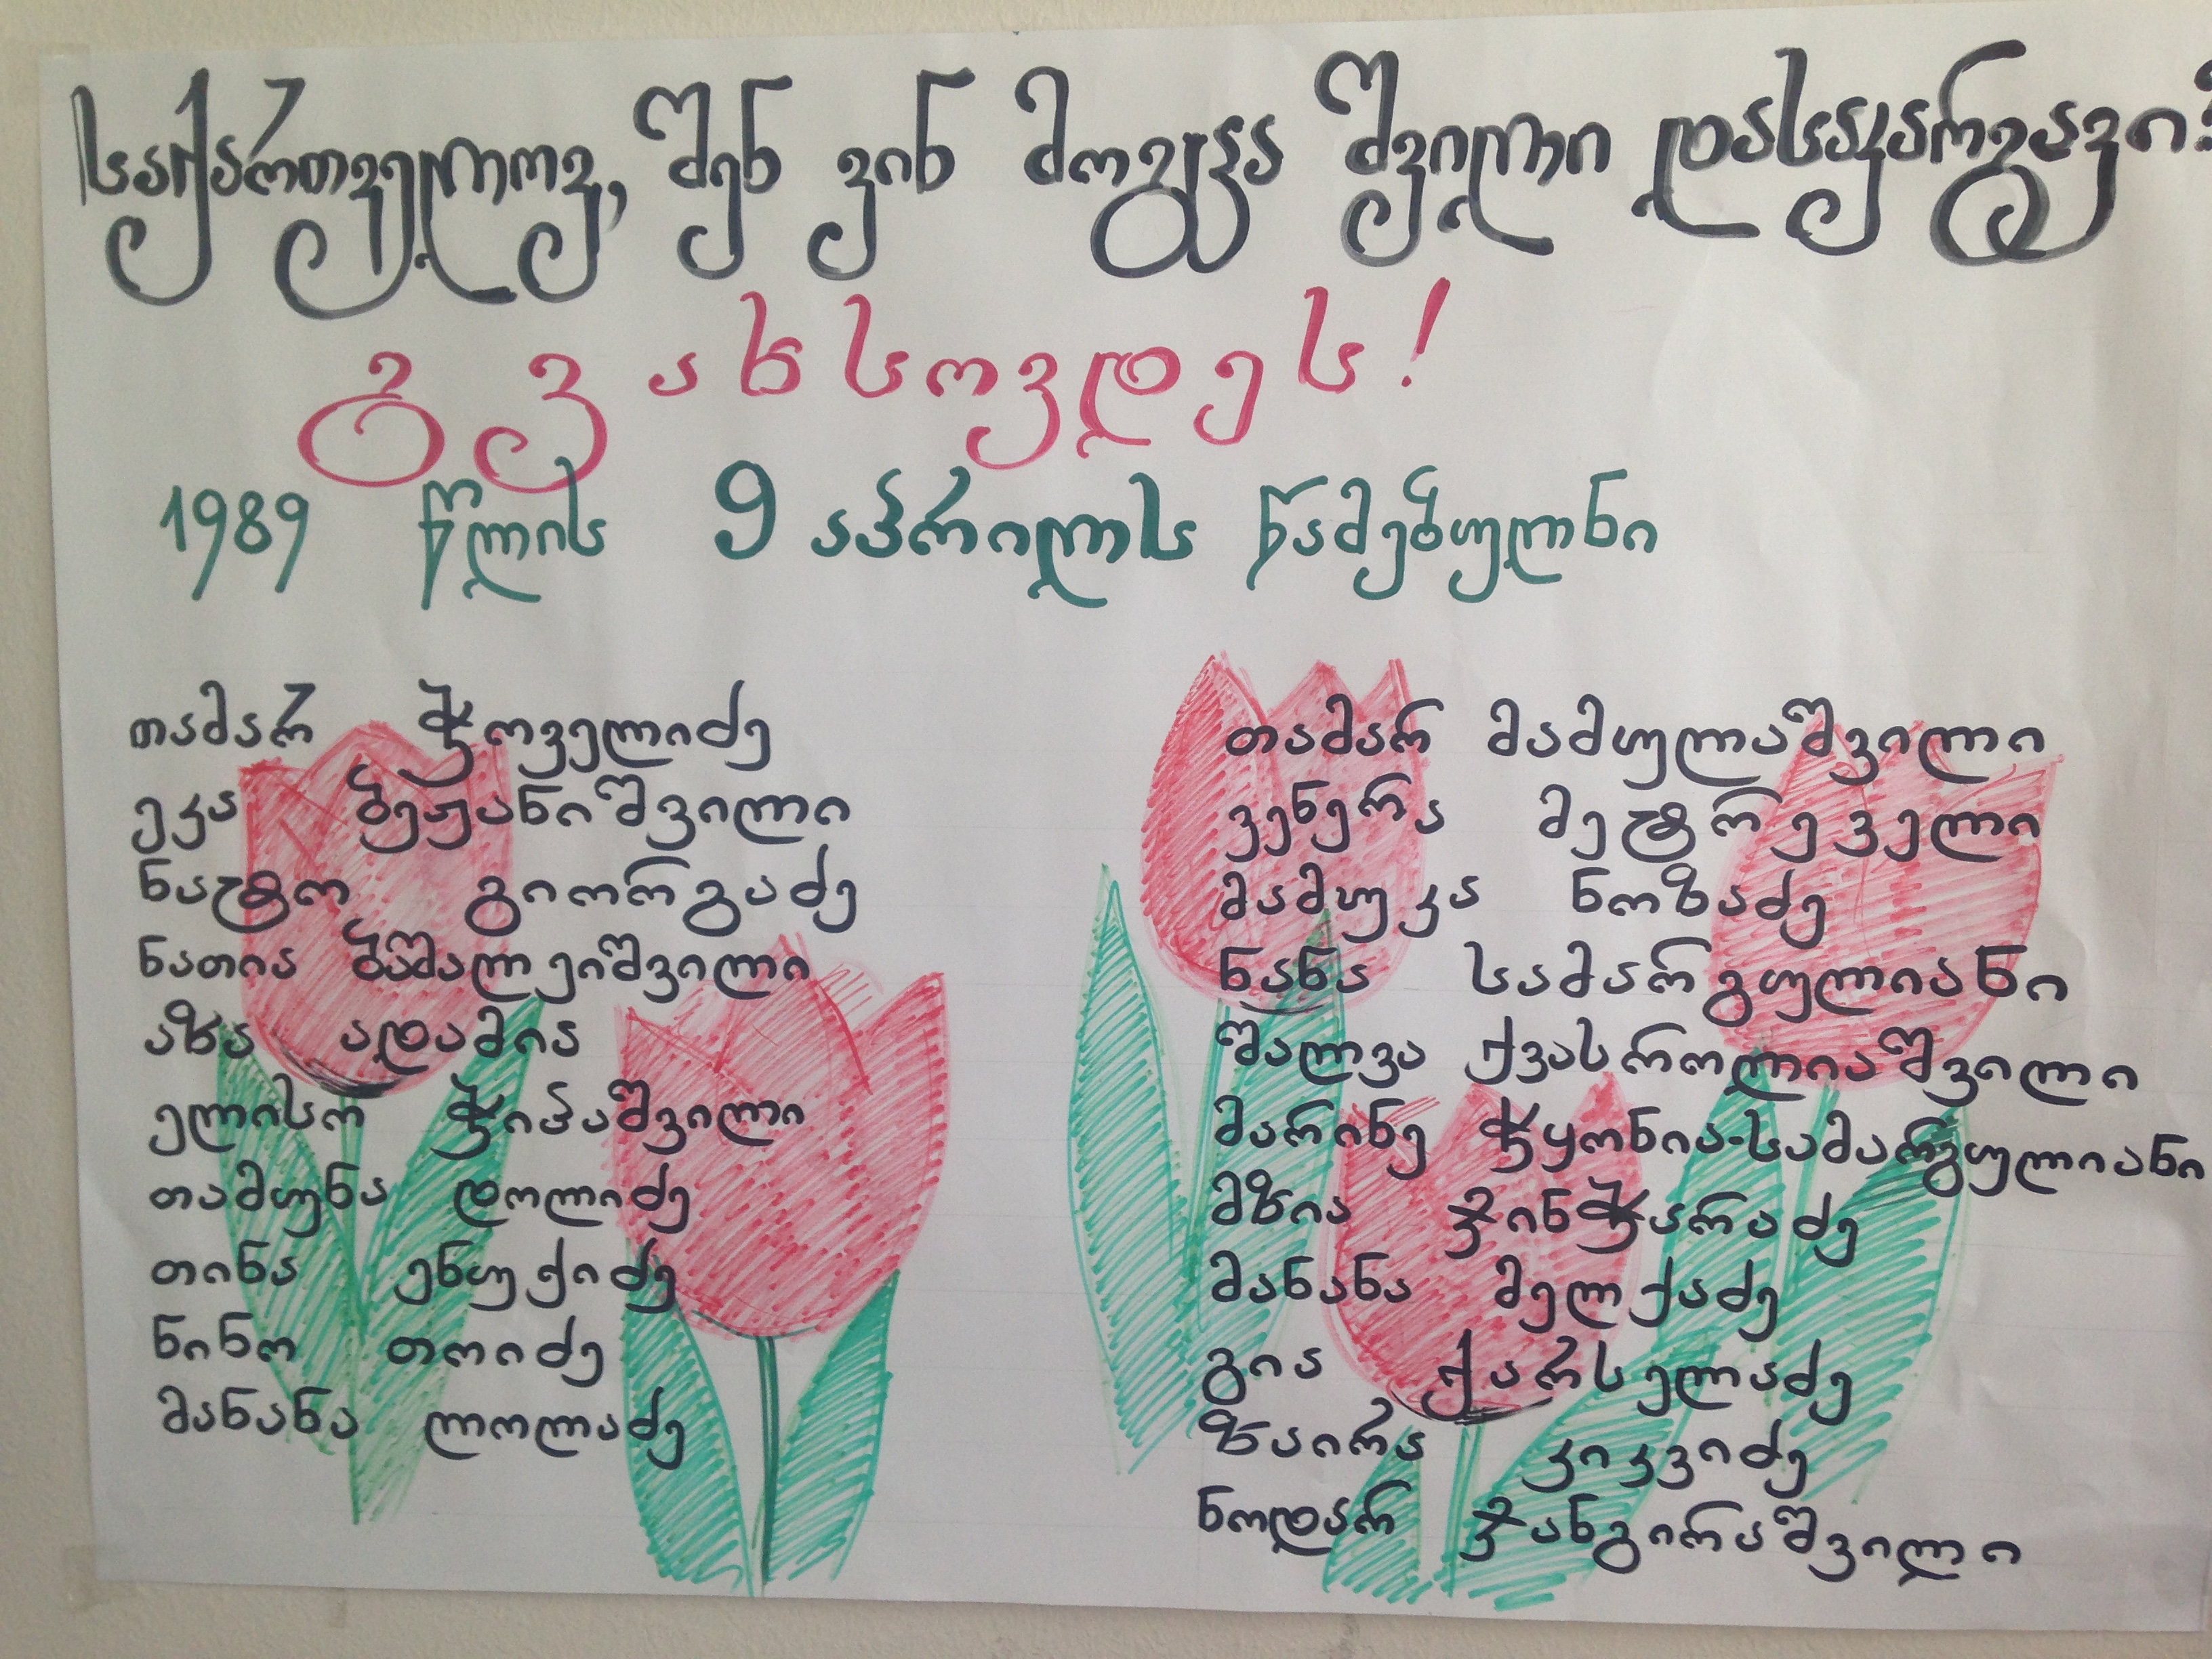 საქართველოვ, შენ ვინ მოგცა შვილი დასაკარგავი?
გვახსოვდეს!
1989 წლის 9 აპრილს წამებულნი
თამარ ჭოველიძე
ეკა ბეჟანიშვილი
ნატო გიორგაძე
ნათია ბაშალეიშვილი
აზა ადამია
ელისო ჭიპაშვილი
თამუნა დოლიძე
თინა ენუქიძე
ნინო თოიძე
მანანა ლოლაძე
თამარ მამულაშვილი
ვენერა მეტრეველი
მამუკა ნოზაძე
ნანა სამარგულიანი
შალვა ქვასროლიაშვილი
მარინე ჭყონია-სამარგულიანი
მზია ჯინჭარაძე
მანანა მელქაძე
გია ქარსელაძე
ზაირა კიკვიძე
ნოდარ ჯანგირაშვილი